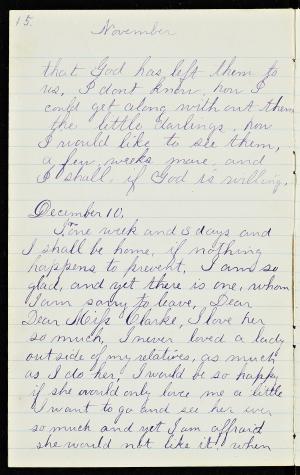 15.
November
that God has left them to
us, I dont know, how I
could get along without them
the little darlings, how
I would like to see them,
a few weeks more, and
I shall, if God is willing.
December 10.
One week and 3 days and
I shall be home, if nothing
happens to prevent. I am so
glad, and yet there is one, whom
I am sorry to leave, Dear
Dear Miss Clarke, I love her
so much, I never loved a lady
outside of my relatives, as much
as I do her, I would be so happy
if she would only love me a little
I want to go and see her ever
so much and yet I am affraid
she would not like it! when